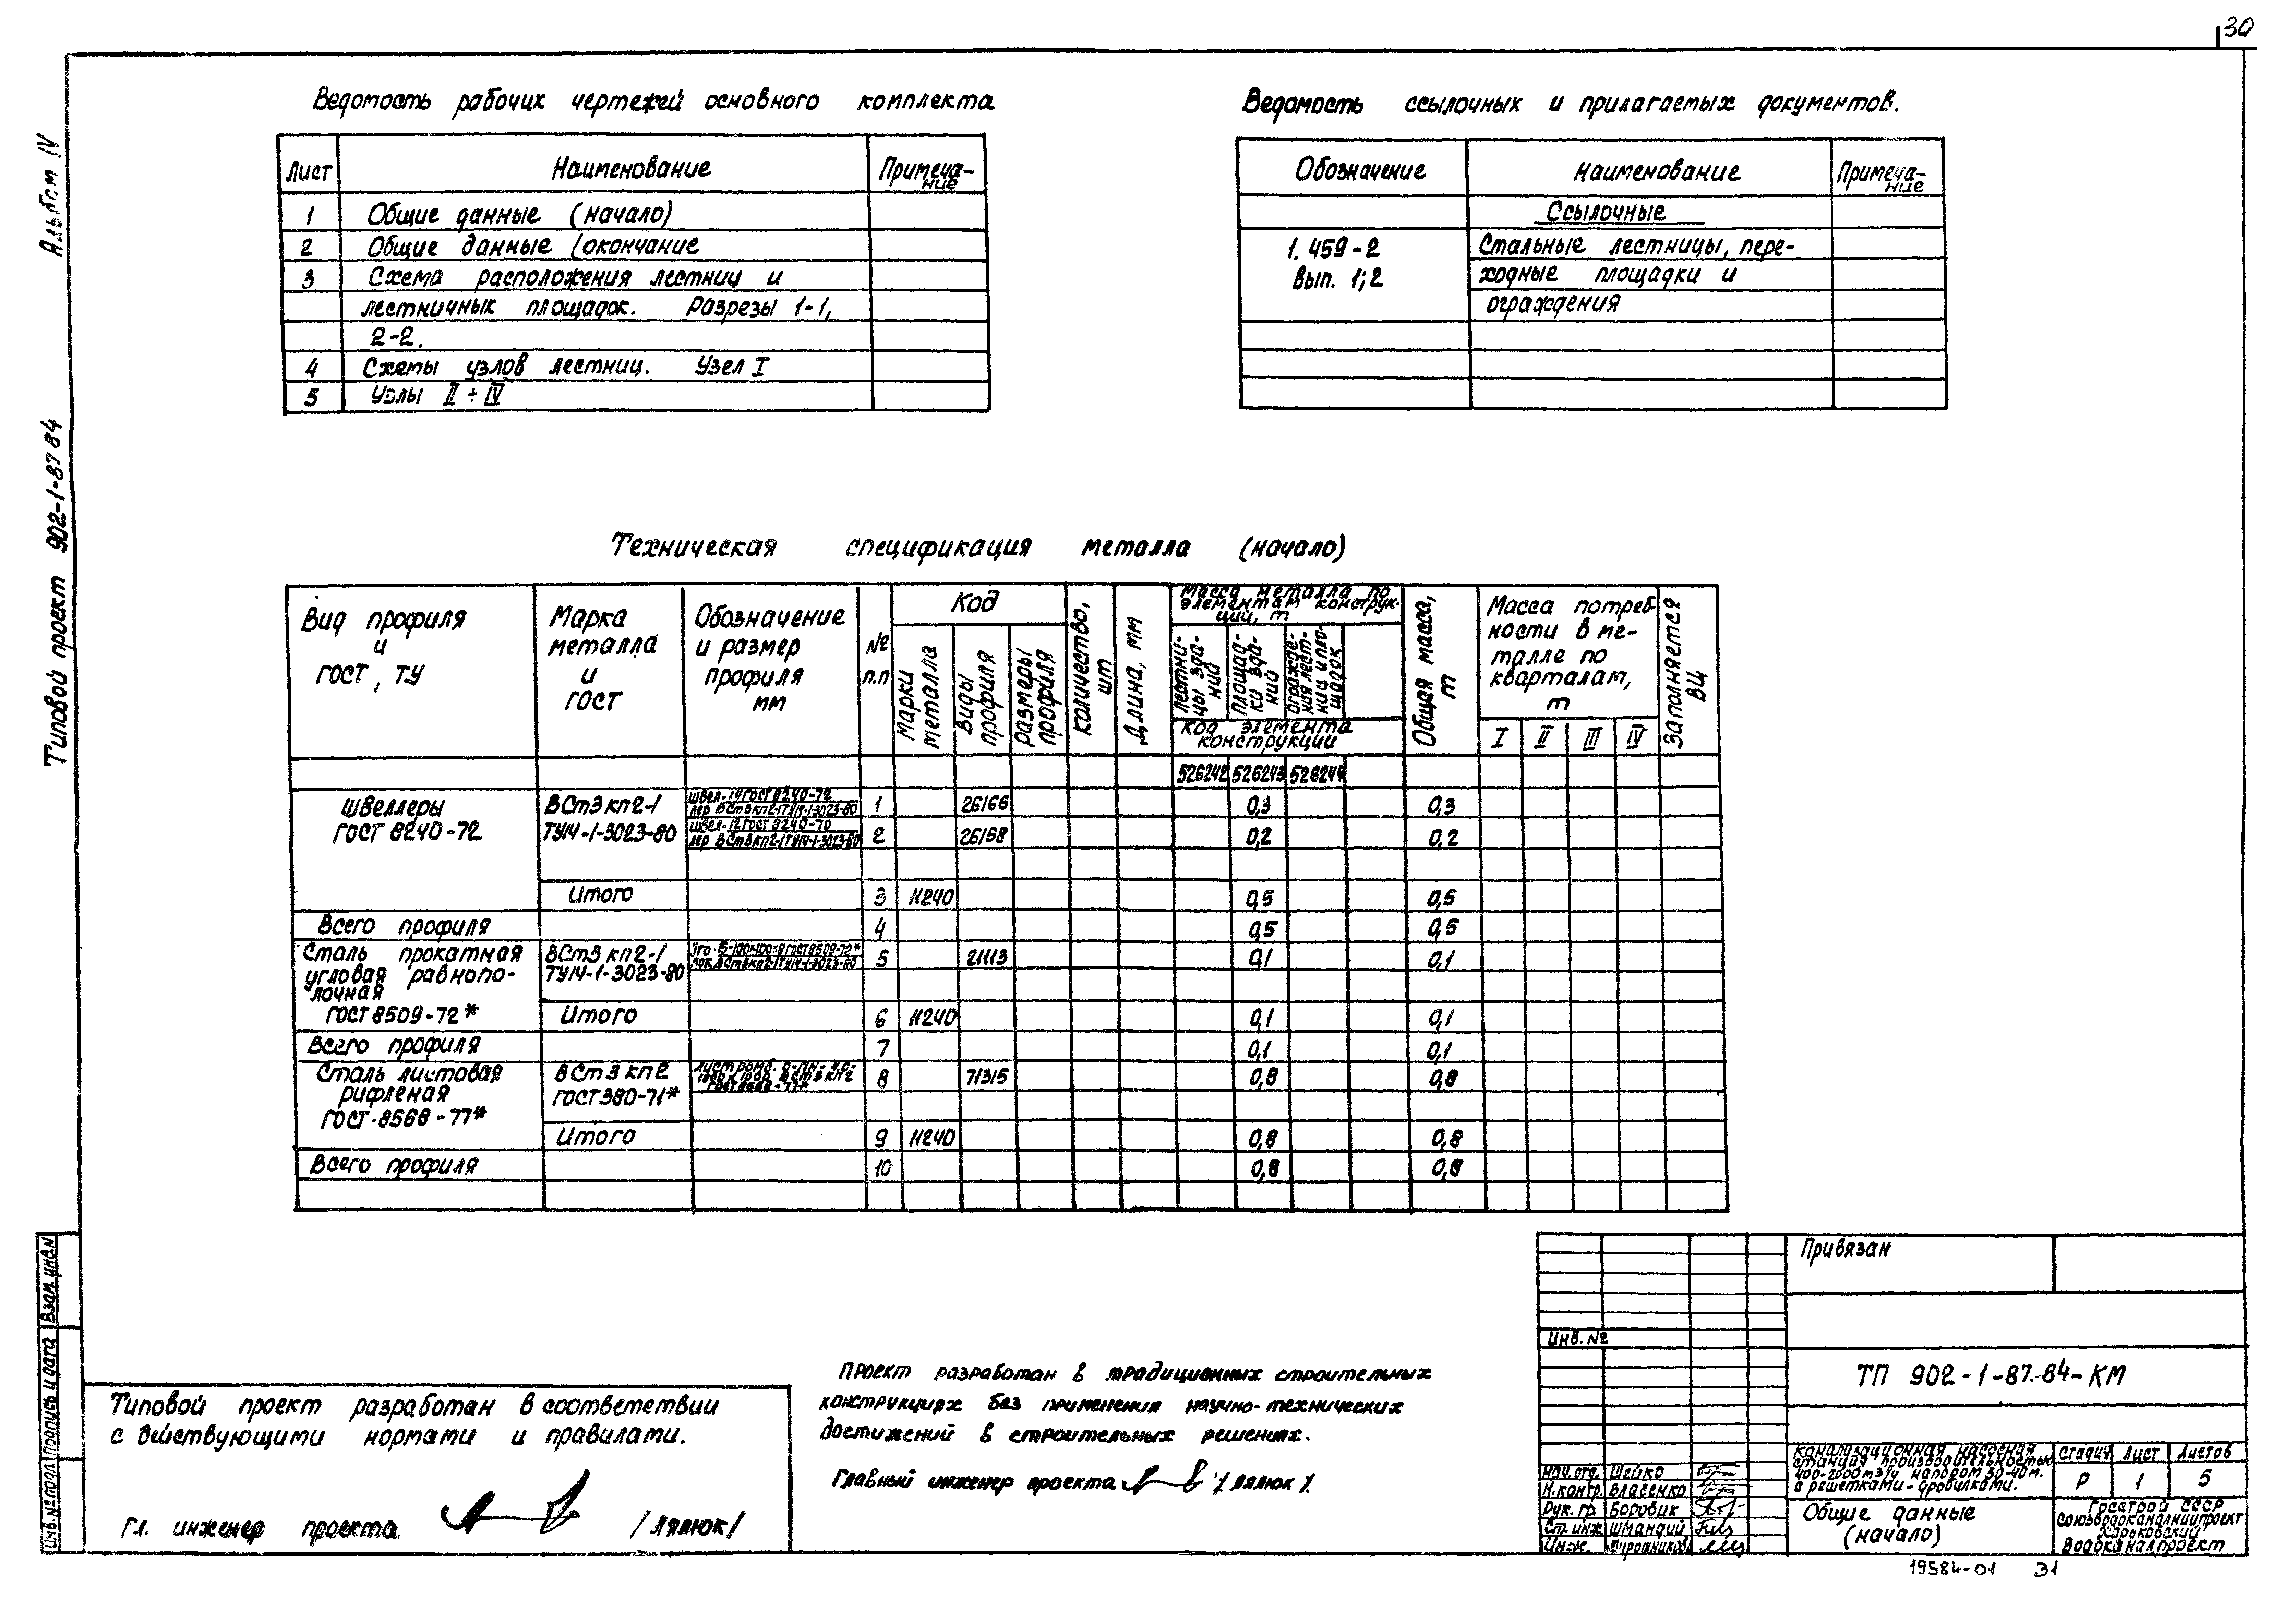 30
Альбом IV
Типовой проект 902-1-87 84
Ведомость рабочих чертежей основного комплекта
Лист | Наименование | Примеча-ние
1 | Общие данные (начало)
2 | Общие данные (окончание
3 | Схема расположения лестниц и
лестничных площадок. Разрезы 1-1,
2-2.
4 | Схемы узлов лестниц. Узел I
5 | Узлы II ÷ IV
Ведомость ссылочных и прилагаемых документов.
Обозначение | Наименование | Примеча-ние
Ссылочные
1. 459-2 | Стальные лестницы, пере-
Вып. 1;2 | ходные площадки и
ограждения
Техническая спецификация металла (начало)
Вид профиля и ГОСТ, ТУ
Марка металла и ГОСТ
Обозначение и размер профиля мм
№ п.п
Код
Марки металла
Виды профиля
Размеры профиля
Количество, шт
Длина, мм
Масса металла по элементам конструк-ций, т
Лестни-цы зда-ний
Площад-ки зда-ний
Огражде-ния лест-ниц и пло-щадок
Код элемента конструкции
Общая масса, т
Масса потреб ности в ме-талле по кварталам, т
I | II | III | IV
Заполняется ВЦ
526242 | 526243 | 526244
Швеллеры | ВСт3 кп2-1 | Швел-14 ГОСТ 8240-72 | 1 | 26166 | 0,3 | 0,3
пер ВСт3кп2-1ТУ14-1-3023-80
ГОСТ 8240-72 | ТУ14-1-3023-80 | Швел-12 ГОСТ 8240-70 | 2 | 26158 | 0,2 | 0,2
пер ВСт3кп2-1ТУ14-1-3023-80
Итого | 3 | 11240 | 0,5 | 0,5
Всего профиля | 4 | 0,5 | 0,5
Сталь прокатная | ВСт3 кп2-1 | Уго-Б-100х100х8 ГОСТ 8509-72* | 5 | 21113 | 0,1 | 0,1
угловая равнопо- | ТУ14-1-3023-80 | ВСт3кп2-1ТУ14-1-3023-80
лочная
ГОСТ 8509-72* | Итого | 6 | 11240 | 0,1 | 0,1
Всего профиля | 7 | 0,1 | 0,1
Сталь листовая | ВСт3 кп2 | Лист ромб. | 8 | 71315 | 0,8 | 0,8
ВСт3 кп2
рифленая | ГОСТ 380-71* | ГОСТ 8568-77*
ГОСТ.8568-77*
Итого | 9 | 11240 | 0,8 | 0,8
Всего профиля | 10 | 0,8 | 0,8
Взам. инв.N
Подпись и дата
Инв.№ подл
Типовой проект разработан в соответствии
с действующими нормами и правилами.
Гл. инженер проекта /Лялюк/
Проект разработан в традиционных строительных
конструкциях без применения научно-технических
достижений в строительных решениях.
Главный инженер проекта /Лялюк/
Привязан
Инв. №
ТП 902-1-87.84-КМ
Нач.отд. Шейко
Н.контр. Власенко
Рук. гр. Боровик
Ст. инж Шмандий
Инж.
Канализационная насосная
станция производительностью
400-2000 м3/ч напором 30-40 м.
с решетками-дробилками.
Стадия | Лист | Листов
Р | 1 | 5
Общие данные
(начало)
Госстрой СССР
Союзводоканалниипроект
Харьковский
Водоканалпроект
19584-01 31